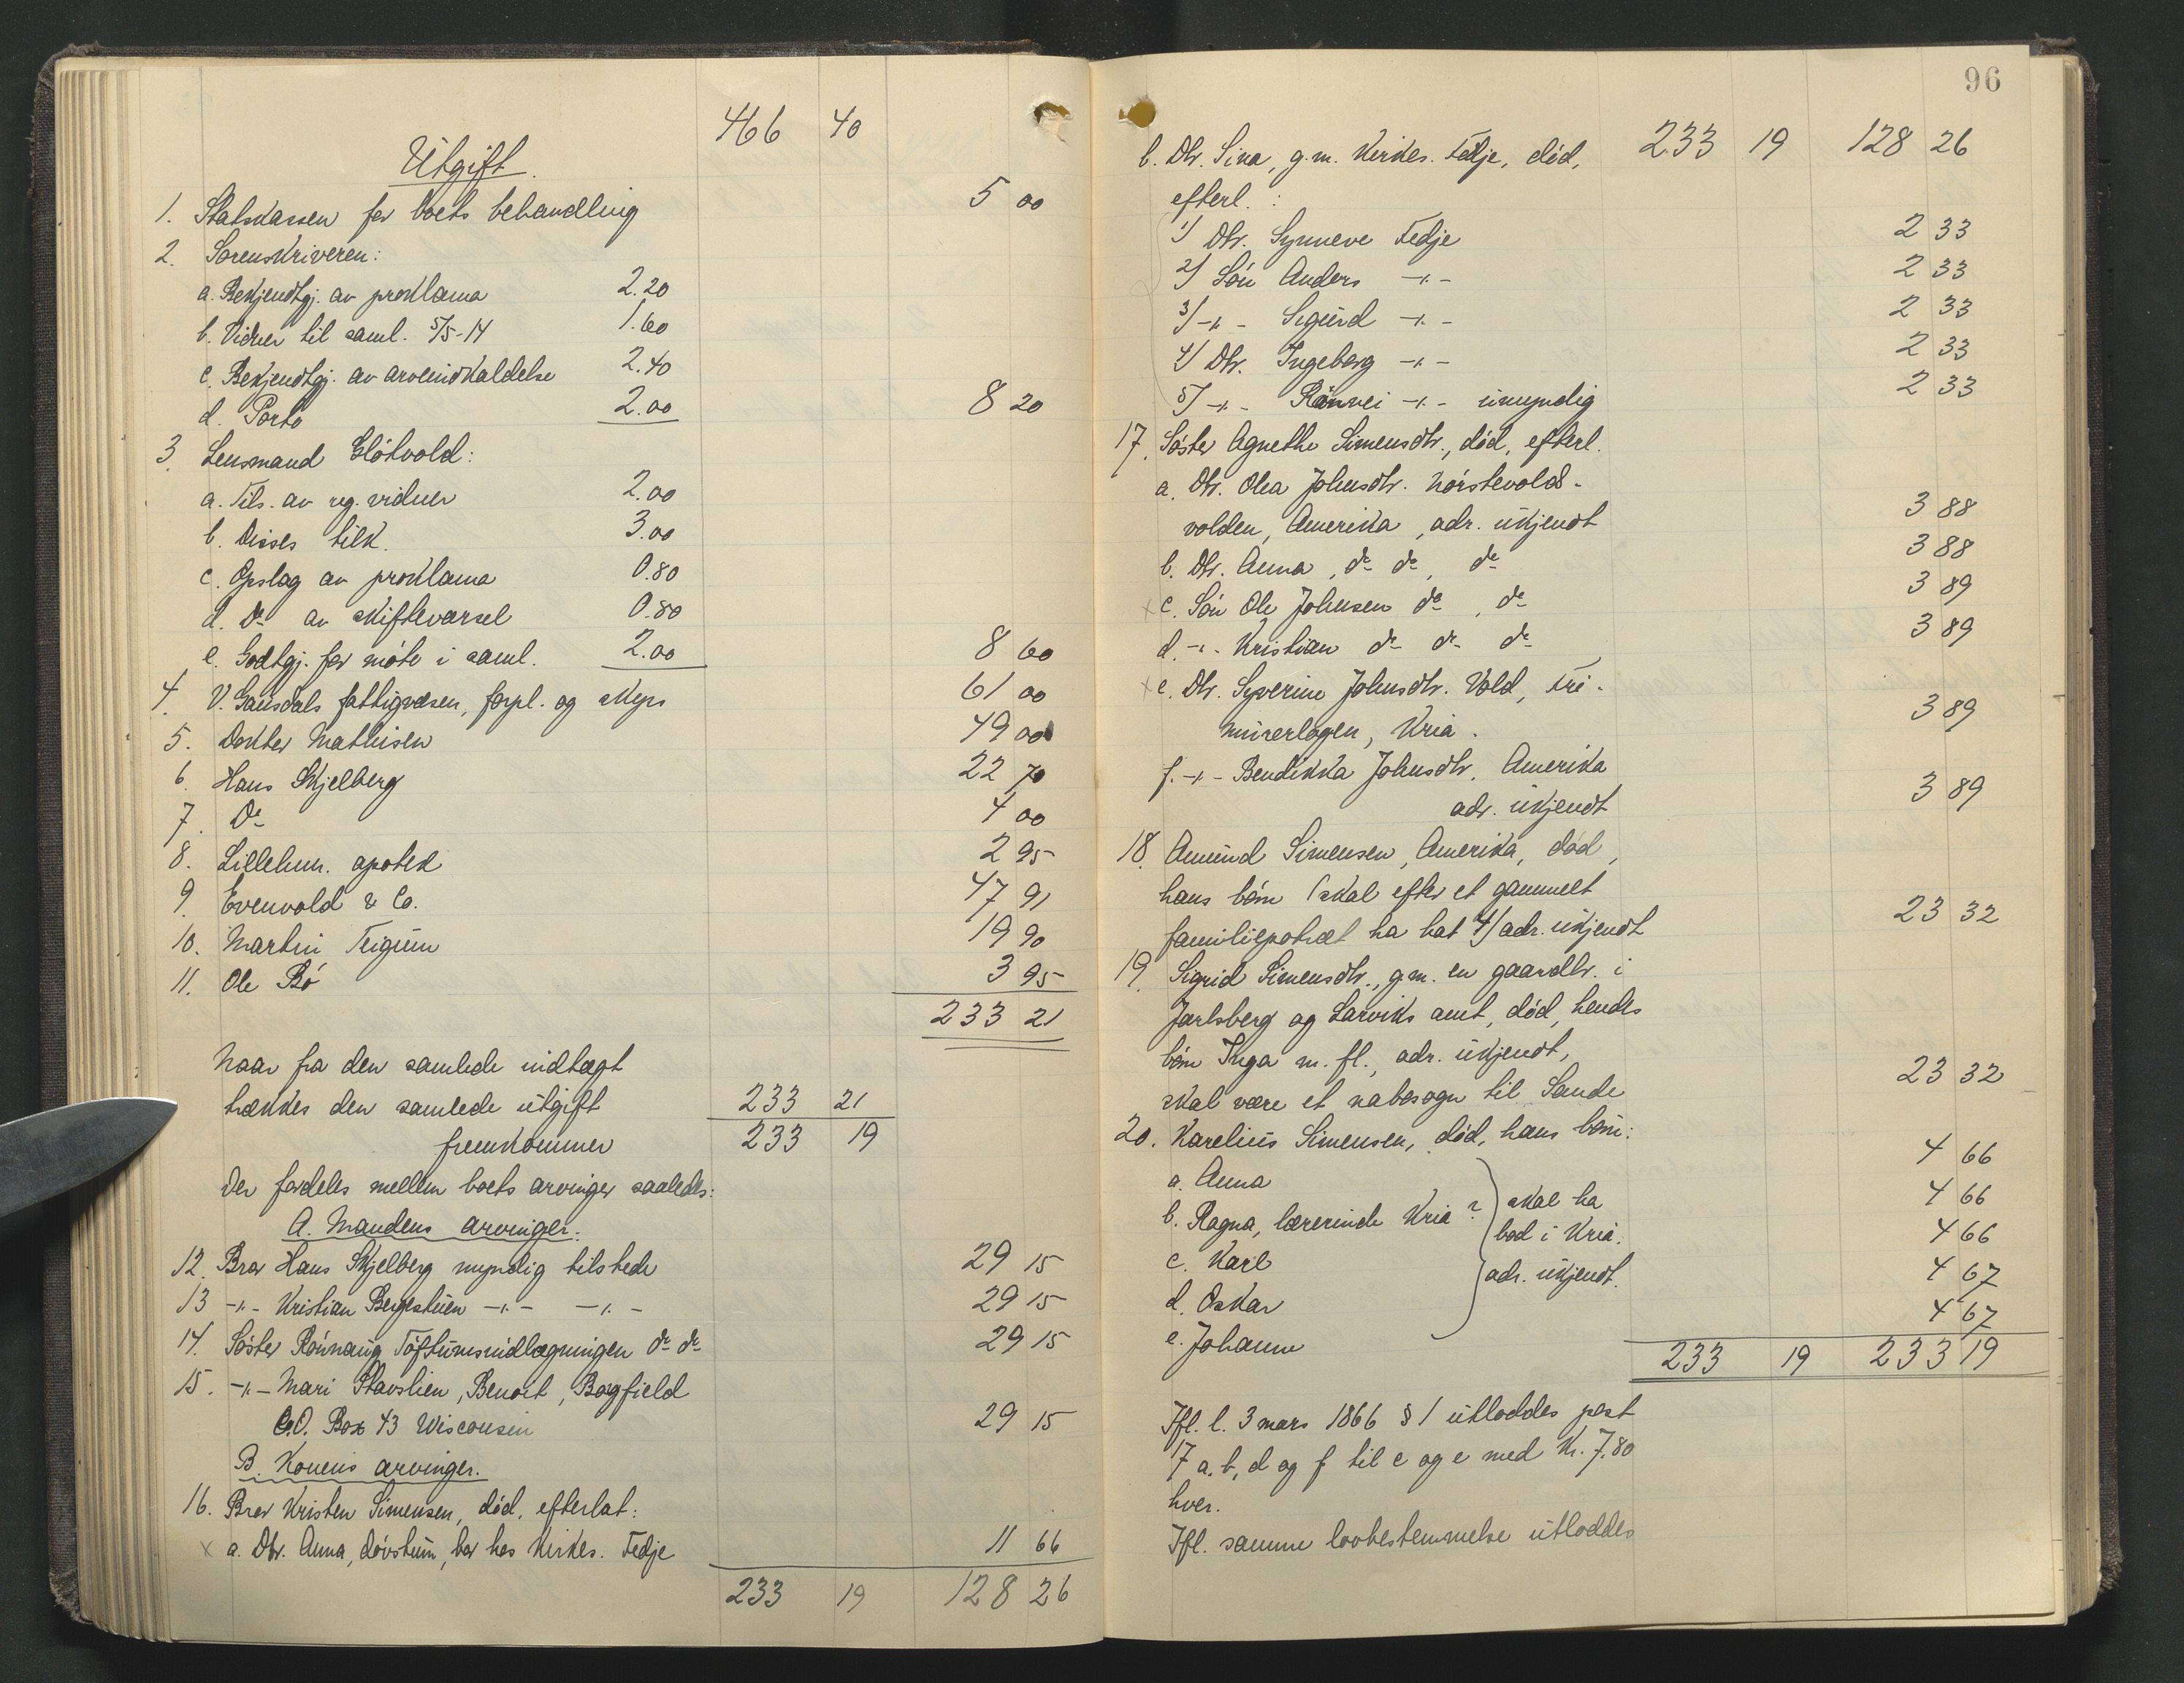 466 40
Utgift.
1. Statskassen for boets behandling 5 00
2. Sorenskriveren:
a. Bekjendtgj. av proklama 2.20
b. Vidner til saml. 5/5-14 1.60
c. Bekjendtgj. av arveindkaldelse 2.40
d. Porto 2.00 8 20
3. Lensmand Slötvold:
a. Tils. av reg. vidner 2.00
b. Disses tilk. 3.00
c. Opslag av proklama 0.80
d. Do av skiftevarsel 0.80
e. Godtgj. for möte i saml. 2.00 8 60
4. V. Gausdals fattigvæsen, forpl. og skyss 61 00
5. Doktor Mathisen 49 00
6. Hans Skjelberg 22 70
7. Do 4 00
8. Lillehm. apotek 2 95
9. Evenvold & Co. 47 91
10. Martin Trigum 19 90
11. Ole Bö 3 95
233 21
Naar fra den samlede indtægt
trækkes den samlede utgift 233 21
fremkommer 233 19
der fordeles mellem boets arvinger saaledes:
A. Mandens arvinger:
12. Bror Hans Skjelberg myndig tilstede 29 15
13 -"- Kristian Bergestuen -"- -"- 29 15
14. Söster Rönnaug Töftumsindlægningen do do 29 15
15. -"- Mari Stavslien, Benoit, Bogfield
P.O. Box 43 Wisconsin 29 15
B. Konens arvinger.
16. Bror Kristen Simensen, död, efterlat:
x a. Dtr. Anna, dövstum, bor hos Kirkes. Fedje 11 66
233 19 128 26
96
b. Dtr. Sina, g.m. Kirkes. Fedje, död, 233 19 128 26
efterl.:
1) Dtr. Synneve Fedje 2 33
2) Sön Anders -"- 2 33
3) -"- Sigurd -"- 2 33
4) Dtr. Ingeborg -"- 2 33
5) -"- Rönvei -"- umyndig 2 33
17. Söster Agnethe Simensdtr., död, efterl.
a. Dtr. Olea Johnsdtr. Nörstevolds-
volden, Amerika, adr. ukjendt 3 88
b. Dtr. Anna, do do, do 3 88
x c. Sön Ole Johnsen do, do 3 89
d. -"- Kristian do do do 3 89
x e. Dtr. Syverine Johnsdtr. Vold, Fri-
murerlogen, Kria. 3 89
f. -"- Bendikka Johnsdtr. Amerika
adr. ukjendt 3 89
18. Amund Simensen, Amerika, död,
hans börn (skal efter et gammelt
familieportræt ha hat 4) adr. ukjendt 23 32
19. Sigrid Simensdtr., g.m. en gaardbr. i
Jarlsberg og Larviks amt, död, hendes
börn Inga m. fl., adr. ukjendt,
skal være et nabosogn til Sande 23 32
20. Karelius Simensen, död, hans börn:
a. Anna 4 66
b. Ragna, lærerinde Kria? skal ha 4 66
bod i Kria.
c. Karl adr. ukjendt. 4 66
d. Oskar 4 67
e. Johanne 4 67
233 19 233 19
Ifl. l. 3 mars 1866 § 1 utloddes post
17 a, b, d og f til c og e med Kr. 7.80
hver.
Ifl. samme lovbestemmelse utloddes